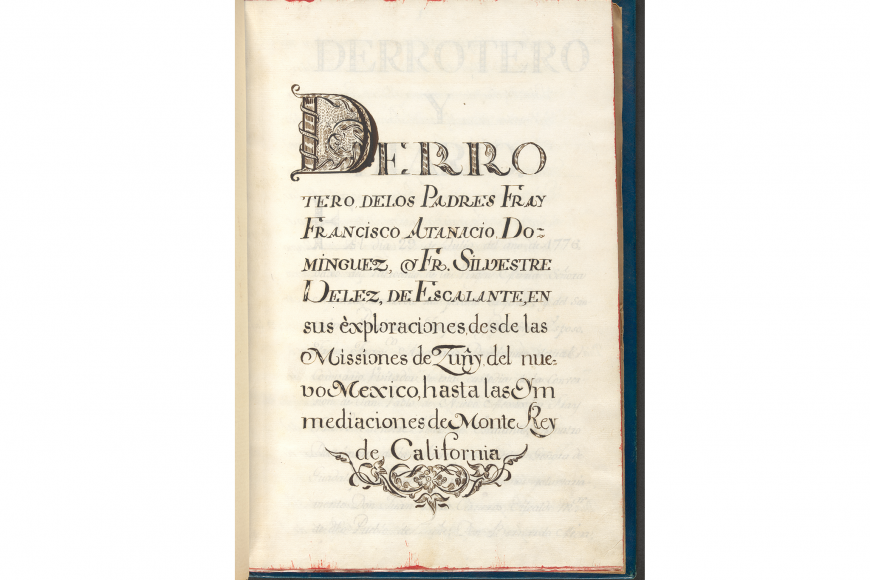 DERRO
TERO DELOS PADRES FRAY
FRANCISCO ATANACIO DO=
MÍNGUEZ, Y FR. SILVESTRE
VELEZ, DE ESCALANTE, EN
sus èxploraciones, desde las
Missiones de Zuñy, del nue-
vo Mexico, hasta las Ym
mediaciones de Monte Rey
de California
DERROTERO
Y